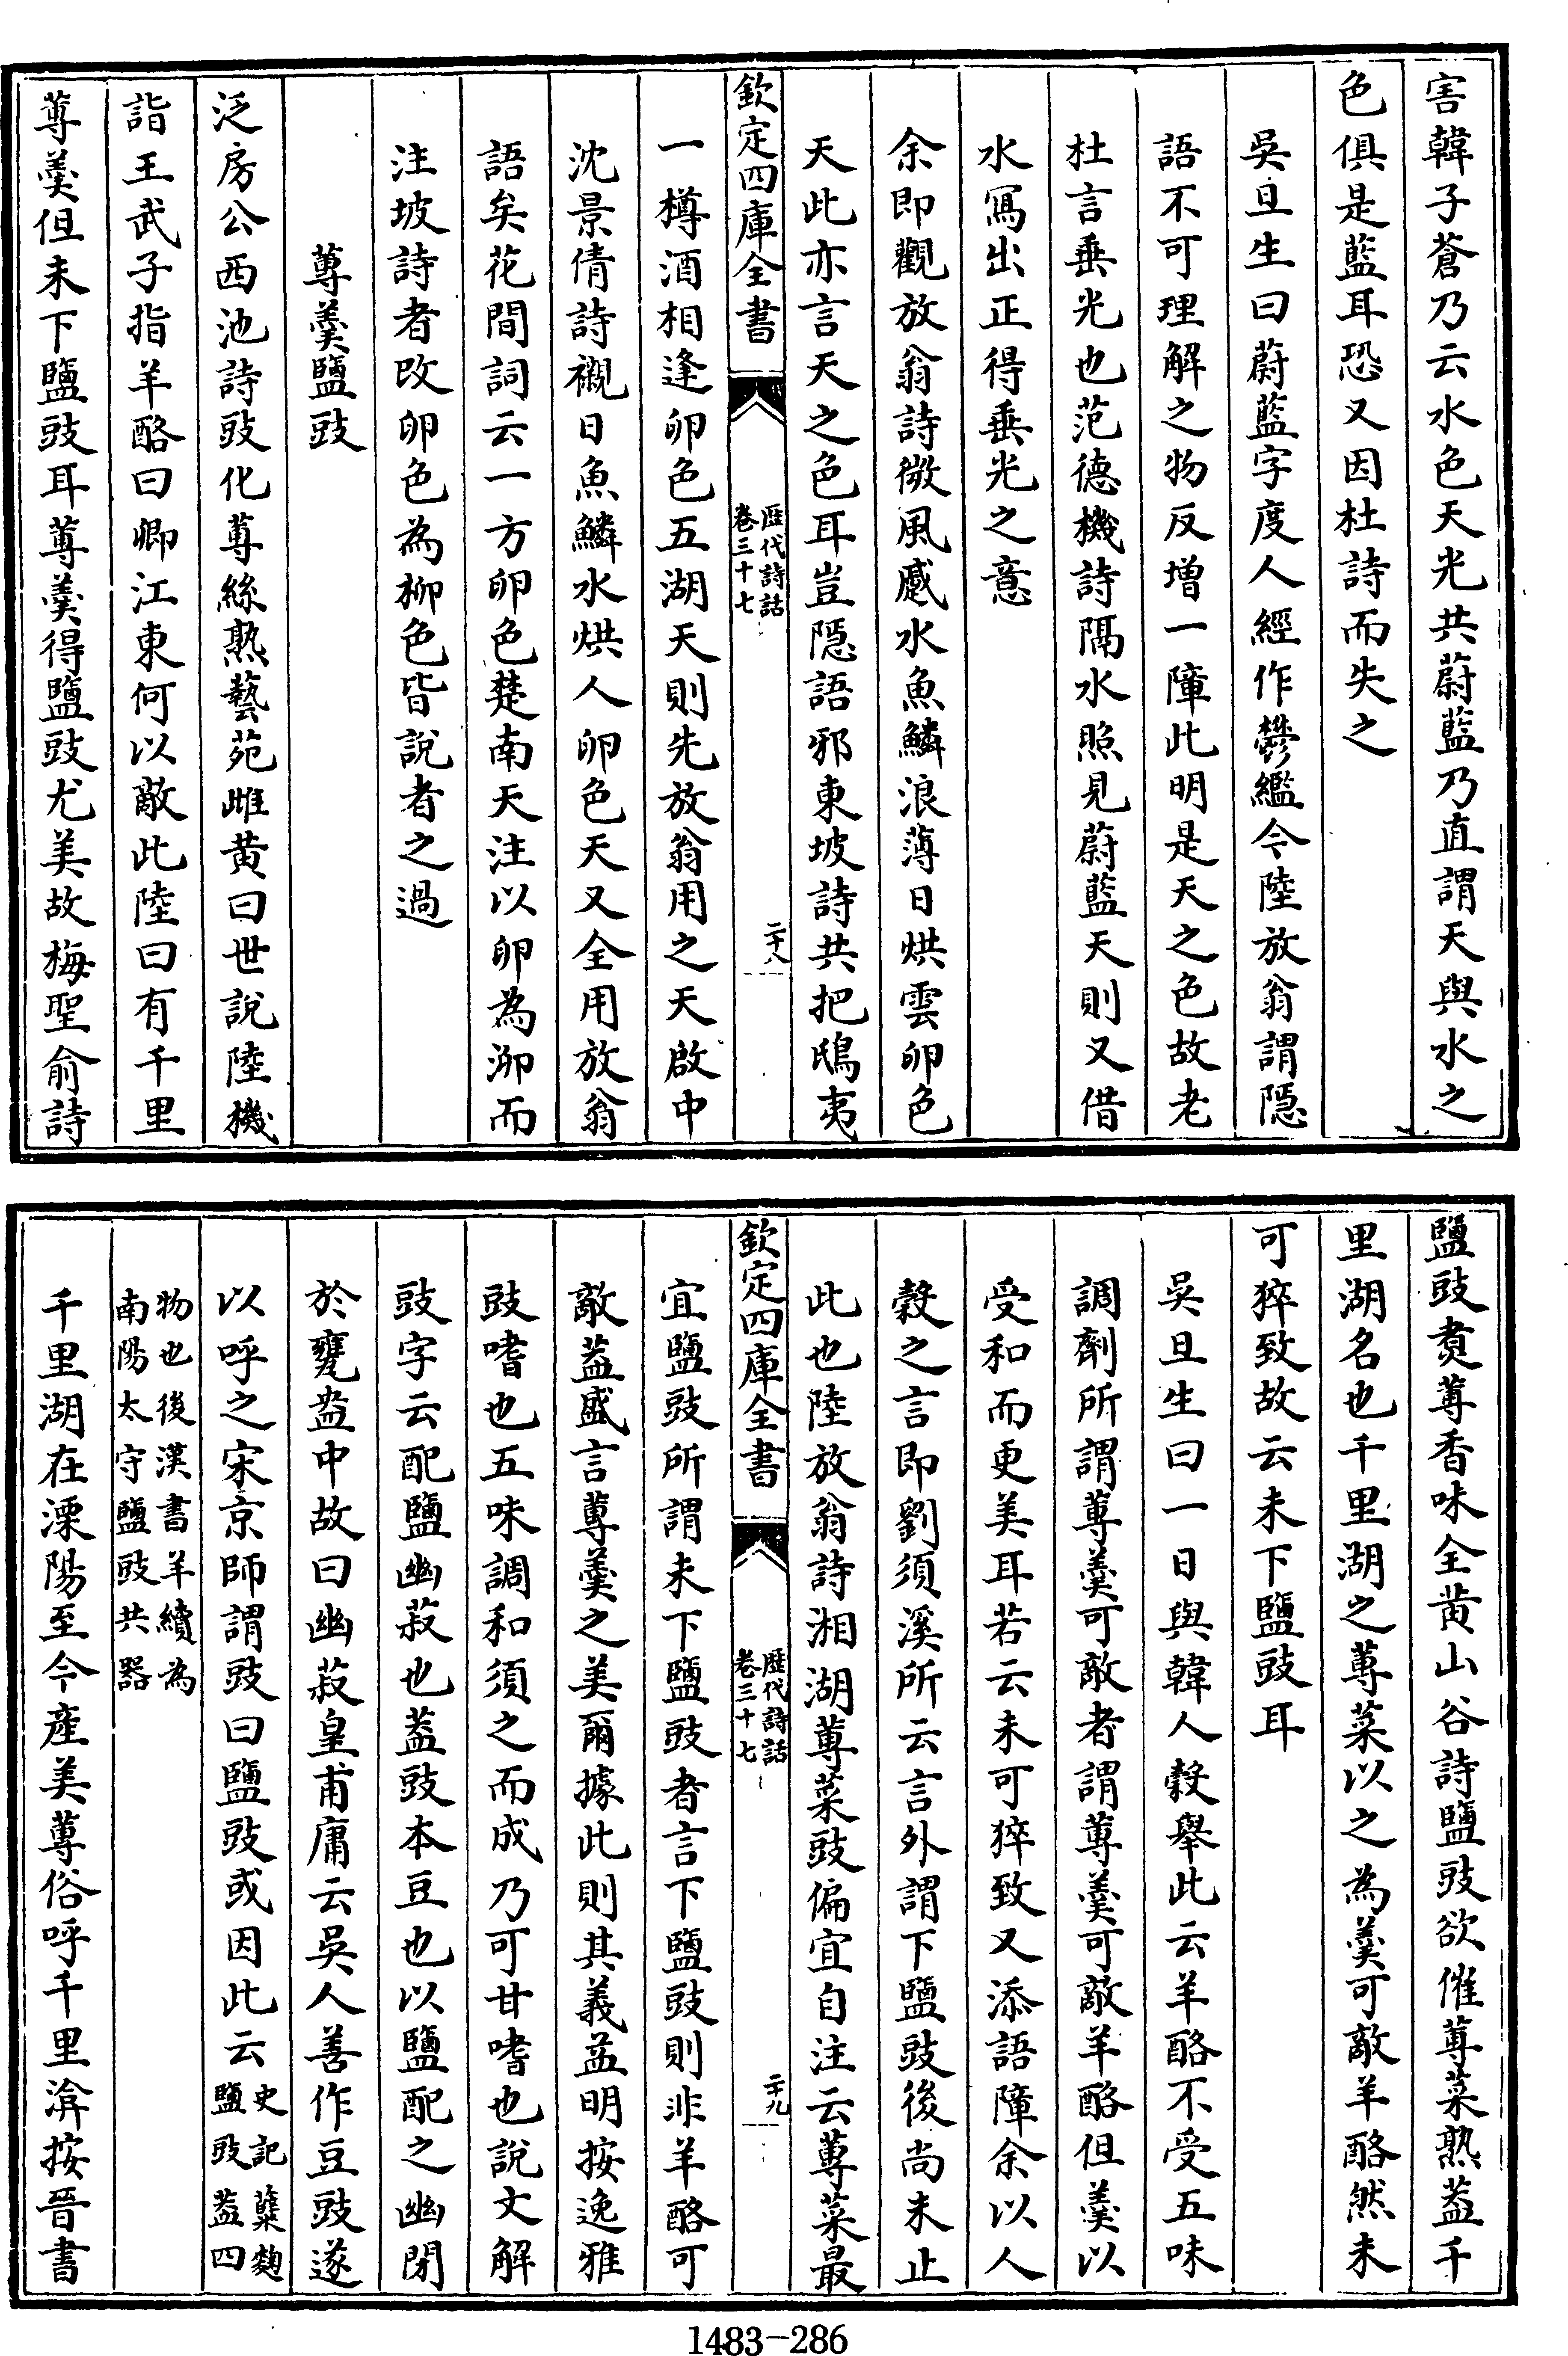 害韓子蒼乃云水色天光共蔚藍乃直謂天與水之
色俱是藍耳恐又因杜詩而失之
吳旦生曰蔚藍字度人經作欝繿今陸放翁謂隱
語不可理解之物反增一障此明是天之色故老
杜言垂光也范德機詩隔水照見蔚藍天則又借
水寫出正得垂光之意
余即觀放翁詩微風蹙水魚鱗浪薄日烘雲卵色
天此亦言天之色耳豈隱語邪東坡詩共把鴟夷
欽定四庫全書
歷代詩話
卷三十七
二十八
一樽酒相逢卵色五湖天則先放翁用之天啟中
沈景倩詩襯日魚鱗水烘人卵色天又全用放翁
語矣花間詞云一方卵色楚南天注以卵為泖而
注坡詩者改卵色為柳色皆說者之過
蓴羹鹽豉
泛房公西池詩豉化蓴絲熟藝苑雌黃曰世說陸機
詣王武子指羊酪曰卿江東何以敵此陸曰有千里
蓴羹但未下鹽豉耳蓴羹得鹽豉尤美故梅聖俞詩
鹽豉煑蓴香味全黄山谷詩鹽豉欲催蓴菜熟葢千
里湖名也千里湖之蓴菜以之為羹可敵羊酪然未
可猝致故云未下鹽豉耳
吳旦生曰一日與韓人穀舉此云羊酪不受五味
調劑所謂蓴羹可敵者謂蓴羹可敵羊酪但羹以
受和而更美耳若云未可猝致又添語障余以人
穀之言即劉須溪所云言外謂下鹽豉後尚未止
此也陸放翁詩湘湖蓴菜豉偏宜自注云蓴菜最
欽定四庫全書
歷代詩話
卷三十七
二十九
宜鹽豉所謂未下鹽豉者言下鹽豉則非羊酪可
敵葢盛言蓴羹之美爾據此則其義益明按逸雅
豉嗜也五味調和須之而成乃可甘嗜也說文解
豉字云配鹽幽菽也葢豉本豆也以鹽配之幽閉
於甕盎中故曰幽菽皇甫庸云吳人善作豆豉遂
以呼之宋京師謂豉曰鹽豉或因此云史記糵麴
鹽豉葢四
物也後漢書羊續為
南陽太守鹽豉共器
千里湖在溧陽至今產美蓴俗呼千里渰按晉書
1483-286